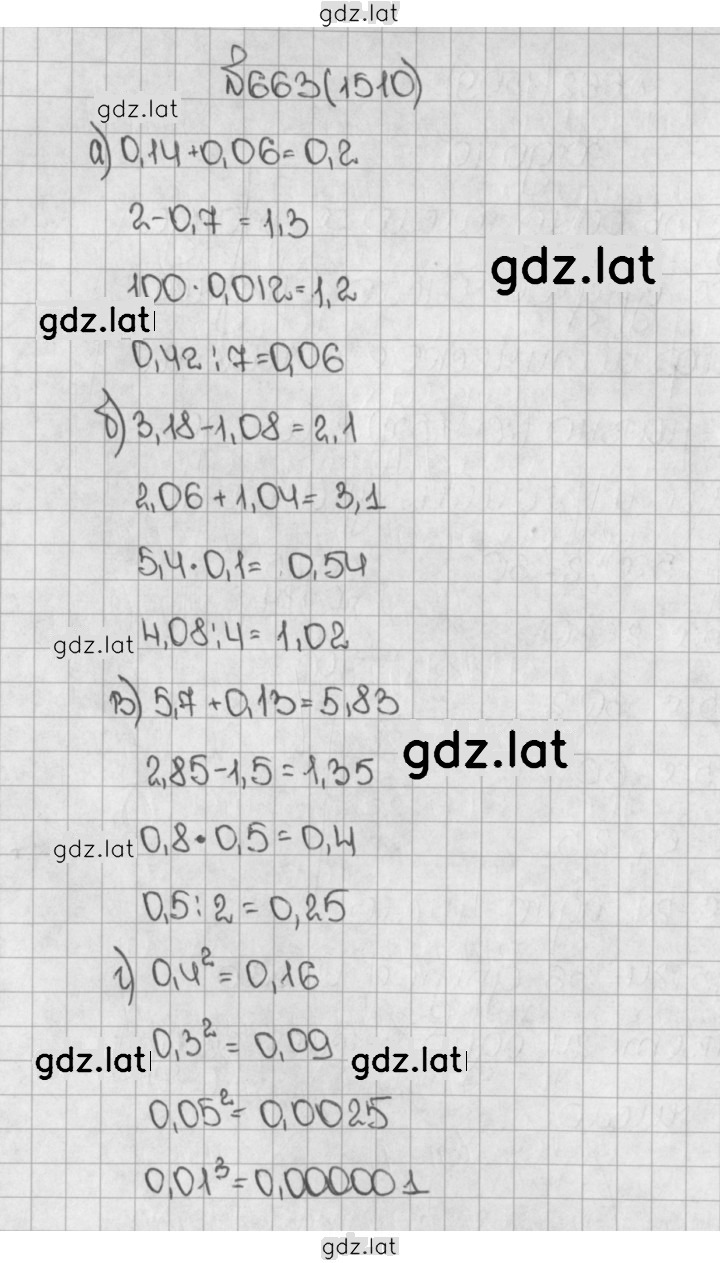 gdz.lat
№663(1510)
gdz.lat
а) 0,14+0,06=0,2
2-0,7=1,3
gdz.lat
100·0,012=1,2
gdz.lat
0,42:7=0,06
б) 3,18-1,08=2,1
2,06+1,04= 3,1
5,4·0,1= 0,54
gdz.lat 4,08:4= 1,02
в) 5,7+0,13=5,83
gdz.lat
2,85-1,5=1,35
gdz.lat 0,8·0,5=0,4
0,5:2=0,25
г) 0,4²=0,16
0,3²= 0,09
gdz.lat gdz.lat
0,05²=0,0025
0,01³=0,000001
gdz.lat